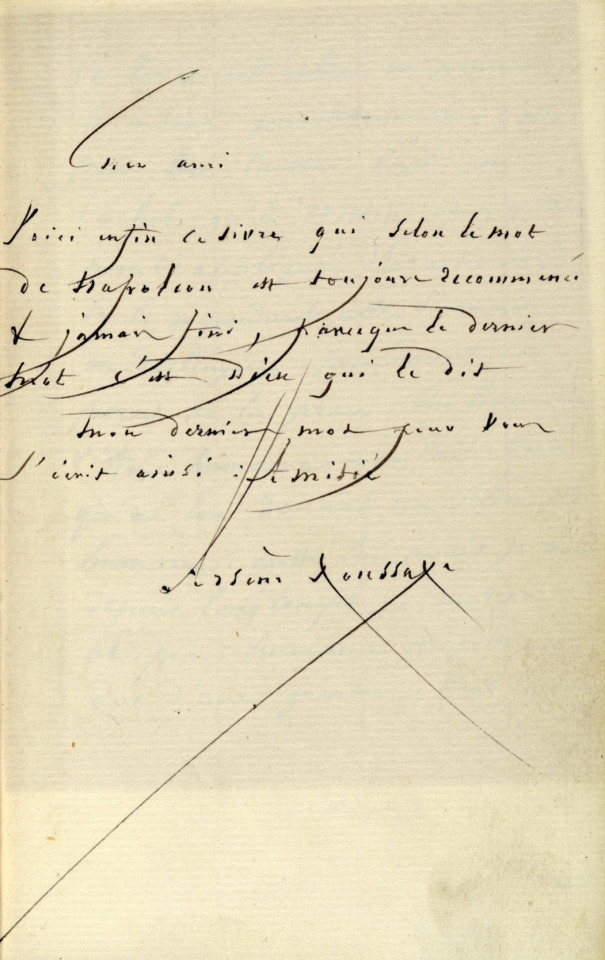 Cher ami
Voici enfin ce livre qui selon le mot
de Napoléon est toujours recommencé
& jamais fini, parceque le dernier
mot c'est Dieu qui le dit
Mon dernier mot pour vous
s'écrit ainsi : Amitié
Arsène Houssaye